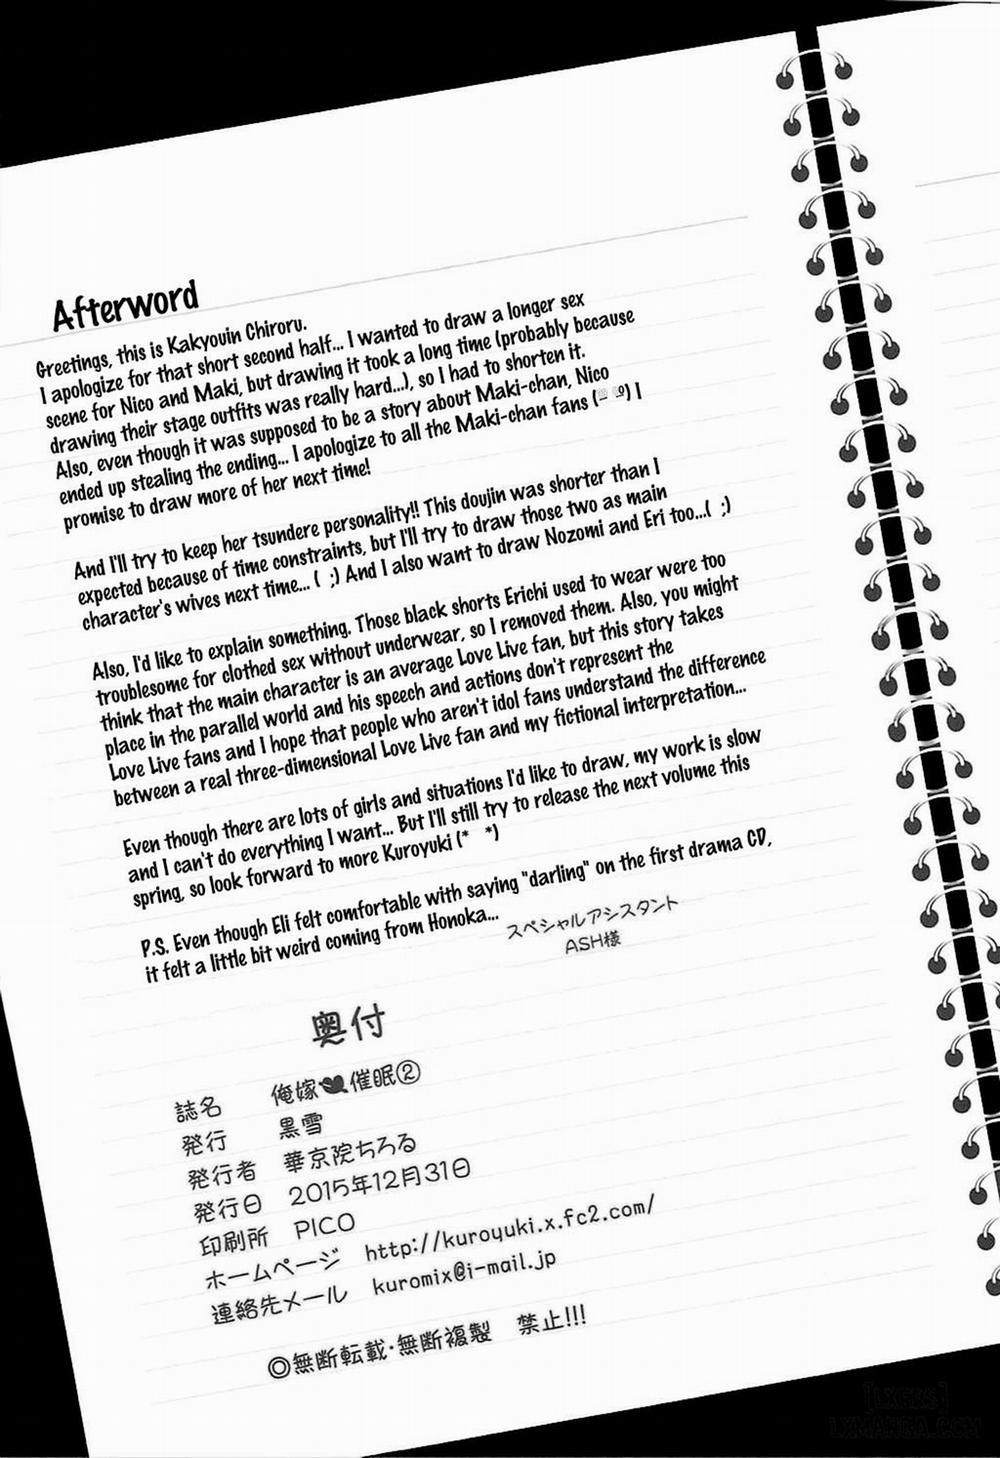 Afterword
Greetings, this is Kakyouin Chiroru.
I apologize for that short second half... I wanted to draw a longer sex
scene for Nico and Maki, but drawing it took a long time (probably because
drawing their stage outfits was really hard...), so I had to shorten it.
Also, even though it was supposed to be a story about Maki-chan, Nico
ended up stealing the ending... I apologize to all the Maki-chan fans ( ) I
promise to draw more of her next time!
And I'll try to keep her tsundere personality!! This doujin was shorter than I
expected because of time constraints, but I'll try to draw those two as main
character's wives next time... ( ;) And I also want to draw Nozomi and Eri too...( ;)
Also, I'd like to explain something. Those black shorts Erichi used to wear were too
troublesome for clothed sex without underwear, so I removed them. Also, you might
think that the main character is an average Love Live fan, but this story takes
place in the parallel world and his speech and actions don't represent the
Love Live fans and I hope that people who aren't idol fans understand the difference
between a real three-dimensional Love Live fan and my fictional interpretation...
Even though there are lots of girls and situations I'd like to draw, my work is slow
and I can't do everything I want... But I'll still try to release the next volume this
spring, so look forward to more Kuroyuki (* *)
P.S. Even though Eli felt comfortable with saying "darling" on the first drama CD,
it felt a little bit weird coming from Honoka...
スペシャルアシスタント
ASH様
奥付
誌名 俺嫁催眠②
発行 黒雪
発行者 華京院ちろる
発行日 2015年12月31日
印刷所 PICO
ホームページ http://kuroyuki.x.fc2.com/
連絡先メール kuromix@i-mail.jp
◎無断転載・無断複製 禁止!!!
[LXERS]
LXMANGA.COM